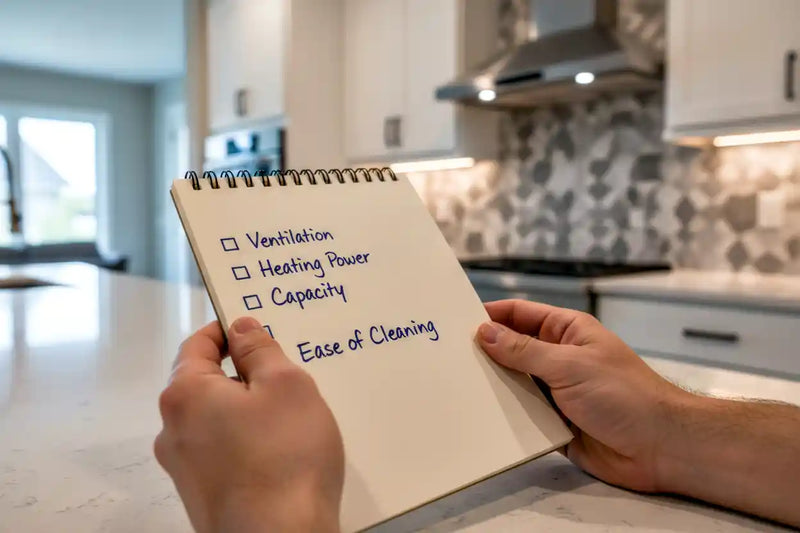 Ventilation
Heating Power
Capacity
Ease of Cleaning